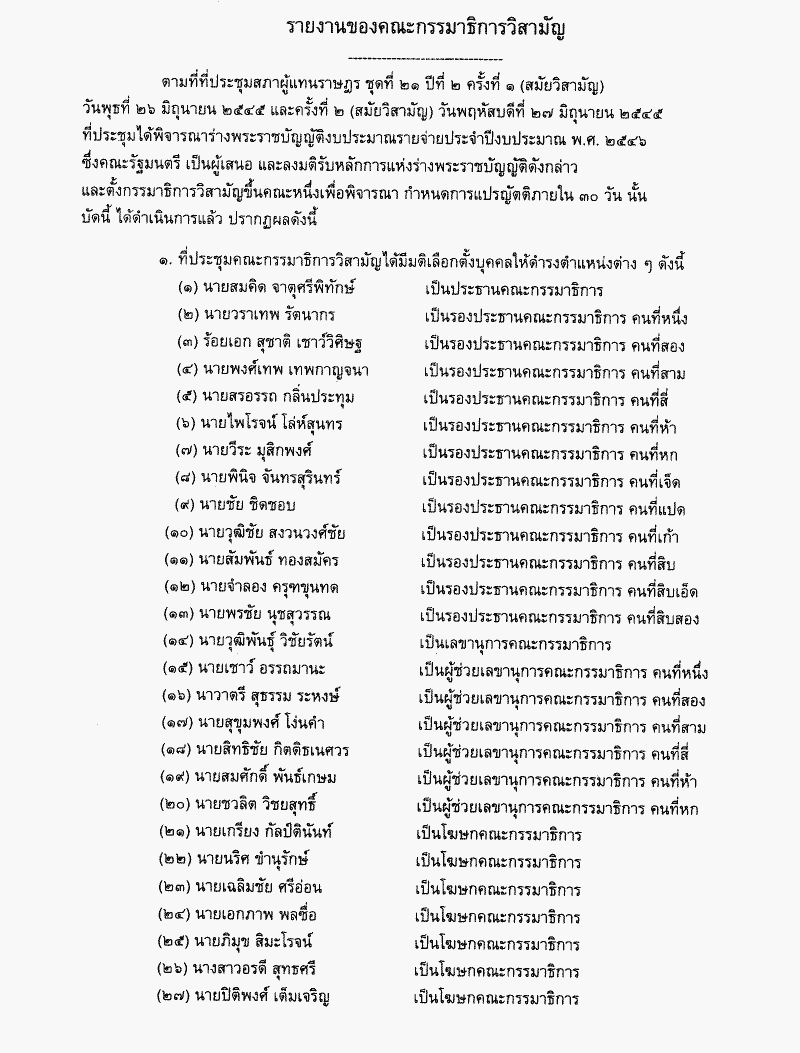 รายงานของคณะกรรมาธิการวิสามัญ
--------------------------------
ตามที่ที่ประชุมสภาผู้แทนราษฎร ชุดที่ ๒๑ ปีที่ ๒ ครั้งที่ ๑ (สมัยวิสามัญ)
วันพุธที่ ๒๖ มิถุนายน ๒๕๔๕ และครั้งที่ ๒ (สมัยวิสามัญ) วันพฤหัสบดีที่ ๒๗ มิถุนายน ๒๕๔๕
ที่ประชุมได้พิจารณาร่างพระราชบัญญัติงบประมาณรายจ่ายประจำปีงบประมาณ พ.ศ. ๒๕๔๖
ซึ่งคณะรัฐมนตรี เป็นผู้เสนอ และลงมติรับหลักการแห่งร่างพระราชบัญญัติดังกล่าว
และตั้งกรรมาธิการวิสามัญขึ้นคณะหนึ่งเพื่อพิจารณา กำหนดการแปรญัตติภายใน ๓๐ วัน นั้น
บัดนี้ ได้ดำเนินการแล้ว ปรากฏผลดังนี้
๑. ที่ประชุมคณะกรรมาธิการวิสามัญได้มีมติเลือกตั้งบุคคลให้ดำรงตำแหน่งต่าง ๆ ดังนี้
(๑) นายสมคิด จาตุศรีพิทักษ์ เป็นประธานคณะกรรมาธิการ
(๒) นายวราเทพ รัตนากร เป็นรองประธานคณะกรรมาธิการ คนที่หนึ่ง
(๓) ร้อยเอก สุชาติ เชาว์วิศิษฐ เป็นรองประธานคณะกรรมาธิการ คนที่สอง
(๔) นายพงศ์เทพ เทพกาญจนา เป็นรองประธานคณะกรรมาธิการ คนที่สาม
(๕) นายสรอรรถ กลิ่นประทุม เป็นรองประธานคณะกรรมาธิการ คนที่สี่
(๖) นายไพโรจน์ โล่ห์สุนทร เป็นรองประธานคณะกรรมาธิการ คนที่ห้า
(๗) นายวีระ มุสิกพงศ์ เป็นรองประธานคณะกรรมาธิการ คนที่หก
(๘) นายพินิจ จันทรสุรินทร์ เป็นรองประธานคณะกรรมาธิการ คนที่เจ็ด
(๙) นายชัย ชิดชอบ เป็นรองประธานคณะกรรมาธิการ คนที่แปด
(๑๐) นายวุฒิชัย สงวนวงศ์ชัย เป็นรองประธานคณะกรรมาธิการ คนที่เก้า
(๑๑) นายสัมพันธ์ ทองสมัคร เป็นรองประธานคณะกรรมาธิการ คนที่สิบ
(๑๒) นายจำลอง ครุฑขุนทด เป็นรองประธานคณะกรรมาธิการ คนที่สิบเอ็ด
(๑๓) นายพรชัย นุชสุวรรณ เป็นรองประธานคณะกรรมาธิการ คนที่สิบสอง
(๑๔) นายวุฒิพันธุ์ วิชัยรัตน์ เป็นเลขานุการคณะกรรมาธิการ
(๑๕) นายเชาว์ อรรถมานะ เป็นผู้ช่วยเลขานุการคณะกรรมาธิการ คนที่หนึ่ง
(๑๖) นาวาตรี สุธรรม ระหงษ์ เป็นผู้ช่วยเลขานุการคณะกรรมาธิการ คนที่สอง
(๑๗) นายสุขุมพงศ์ โง่นคำ เป็นผู้ช่วยเลขานุการคณะกรรมาธิการ คนที่สาม
(๑๘) นายสิทธิชัย กิตติธเนศวร เป็นผู้ช่วยเลขานุการคณะกรรมาธิการ คนที่สี่
(๑๙) นายสมศักดิ์ พันธ์เกษม เป็นผู้ช่วยเลขานุการคณะกรรมาธิการ คนที่ห้า
(๒๐) นายชวลิต วิชยสุทธิ์ เป็นผู้ช่วยเลขานุการคณะกรรมาธิการ คนที่หก
(๒๑) นายเกรียง กัลป์ตินันท์ เป็นโฆษกคณะกรรมาธิการ
(๒๒) นายนริศ ขำนุรักษ์ เป็นโฆษกคณะกรรมาธิการ
(๒๓) นายเฉลิมชัย ศรีอ่อน เป็นโฆษกคณะกรรมาธิการ
(๒๔) นายเอกภาพ พลซื่อ เป็นโฆษกคณะกรรมาธิการ
(๒๕) นายภิมุข สิมะโรจน์ เป็นโฆษกคณะกรรมาธิการ
(๒๖) นางสาวอรดี สุทธศรี เป็นโฆษกคณะกรรมาธิการ
(๒๗) นายปิติพงศ์ เต็มเจริญ เป็นโฆษกคณะกรรมาธิการ